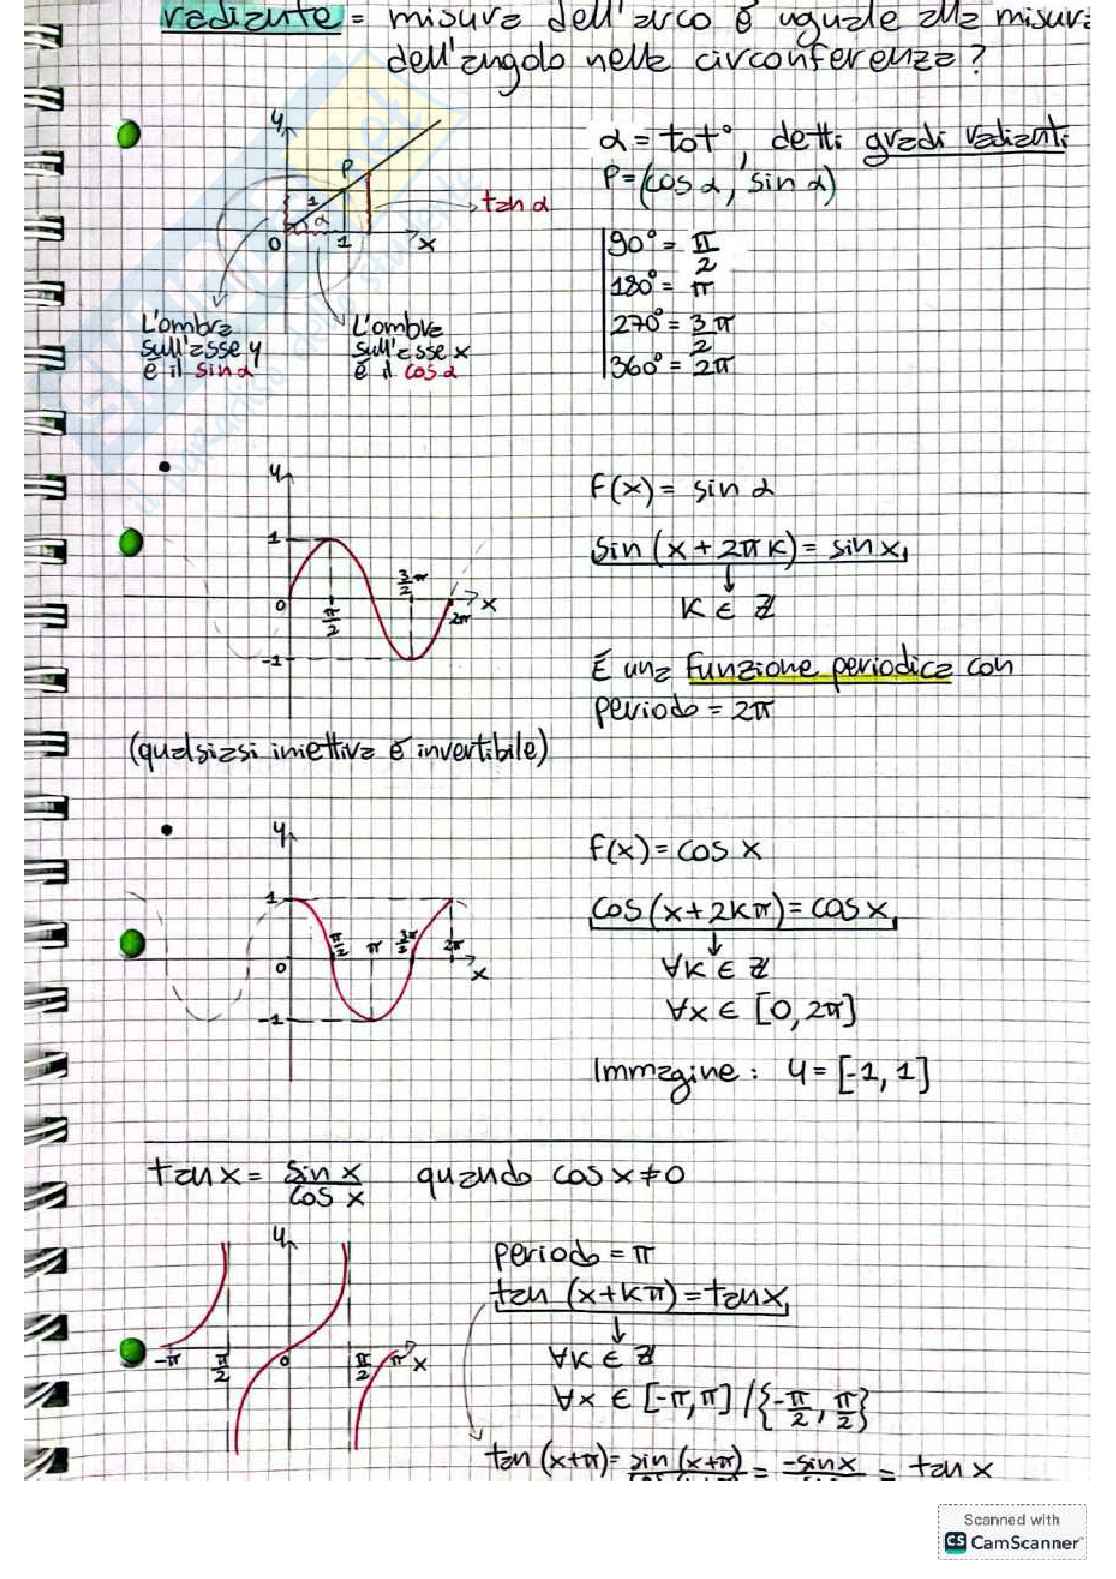 radiante = misura dell'arco è uguale alla misura
dell'angolo nella circonferenza?
y
P
1
α
0
1
x
tan α
L'ombra
sull'asse y
è il sin α
L'ombra
sull'asse x
è il cos α
α = tot°, detti gradi radianti
P = (cos α, sin α)
90° = π/2
180° = π
270° = 3/2 π
360° = 2π
y
1
0
π/2
3/2 π
2π
x
-1
F(x) = sin α
sin (x + 2πk) = sin x,
k ∈ Z
È una funzione periodica con
periodo = 2π
(qualsiasi iniettiva è invertibile)
y
1
0
π/2
π
3π/2
2π
x
-1
F(x) = cos x
cos (x + 2kπ) = cos x,
∀k ∈ Z
∀x ∈ [0, 2π]
Immagine: y = [-1, 1]
tan x = sin x / cos x quando cos x ≠ 0
y
-π
π/2
0
π/2
π
x
periodo = π
tan (x + kπ) = tan x,
∀k ∈ Z
∀x ∈ [-π, π] / {-π/2, π/2}
tan (x+π) = sin (x+π) = -sin x = tan x
Scanned with
CS CamScanner